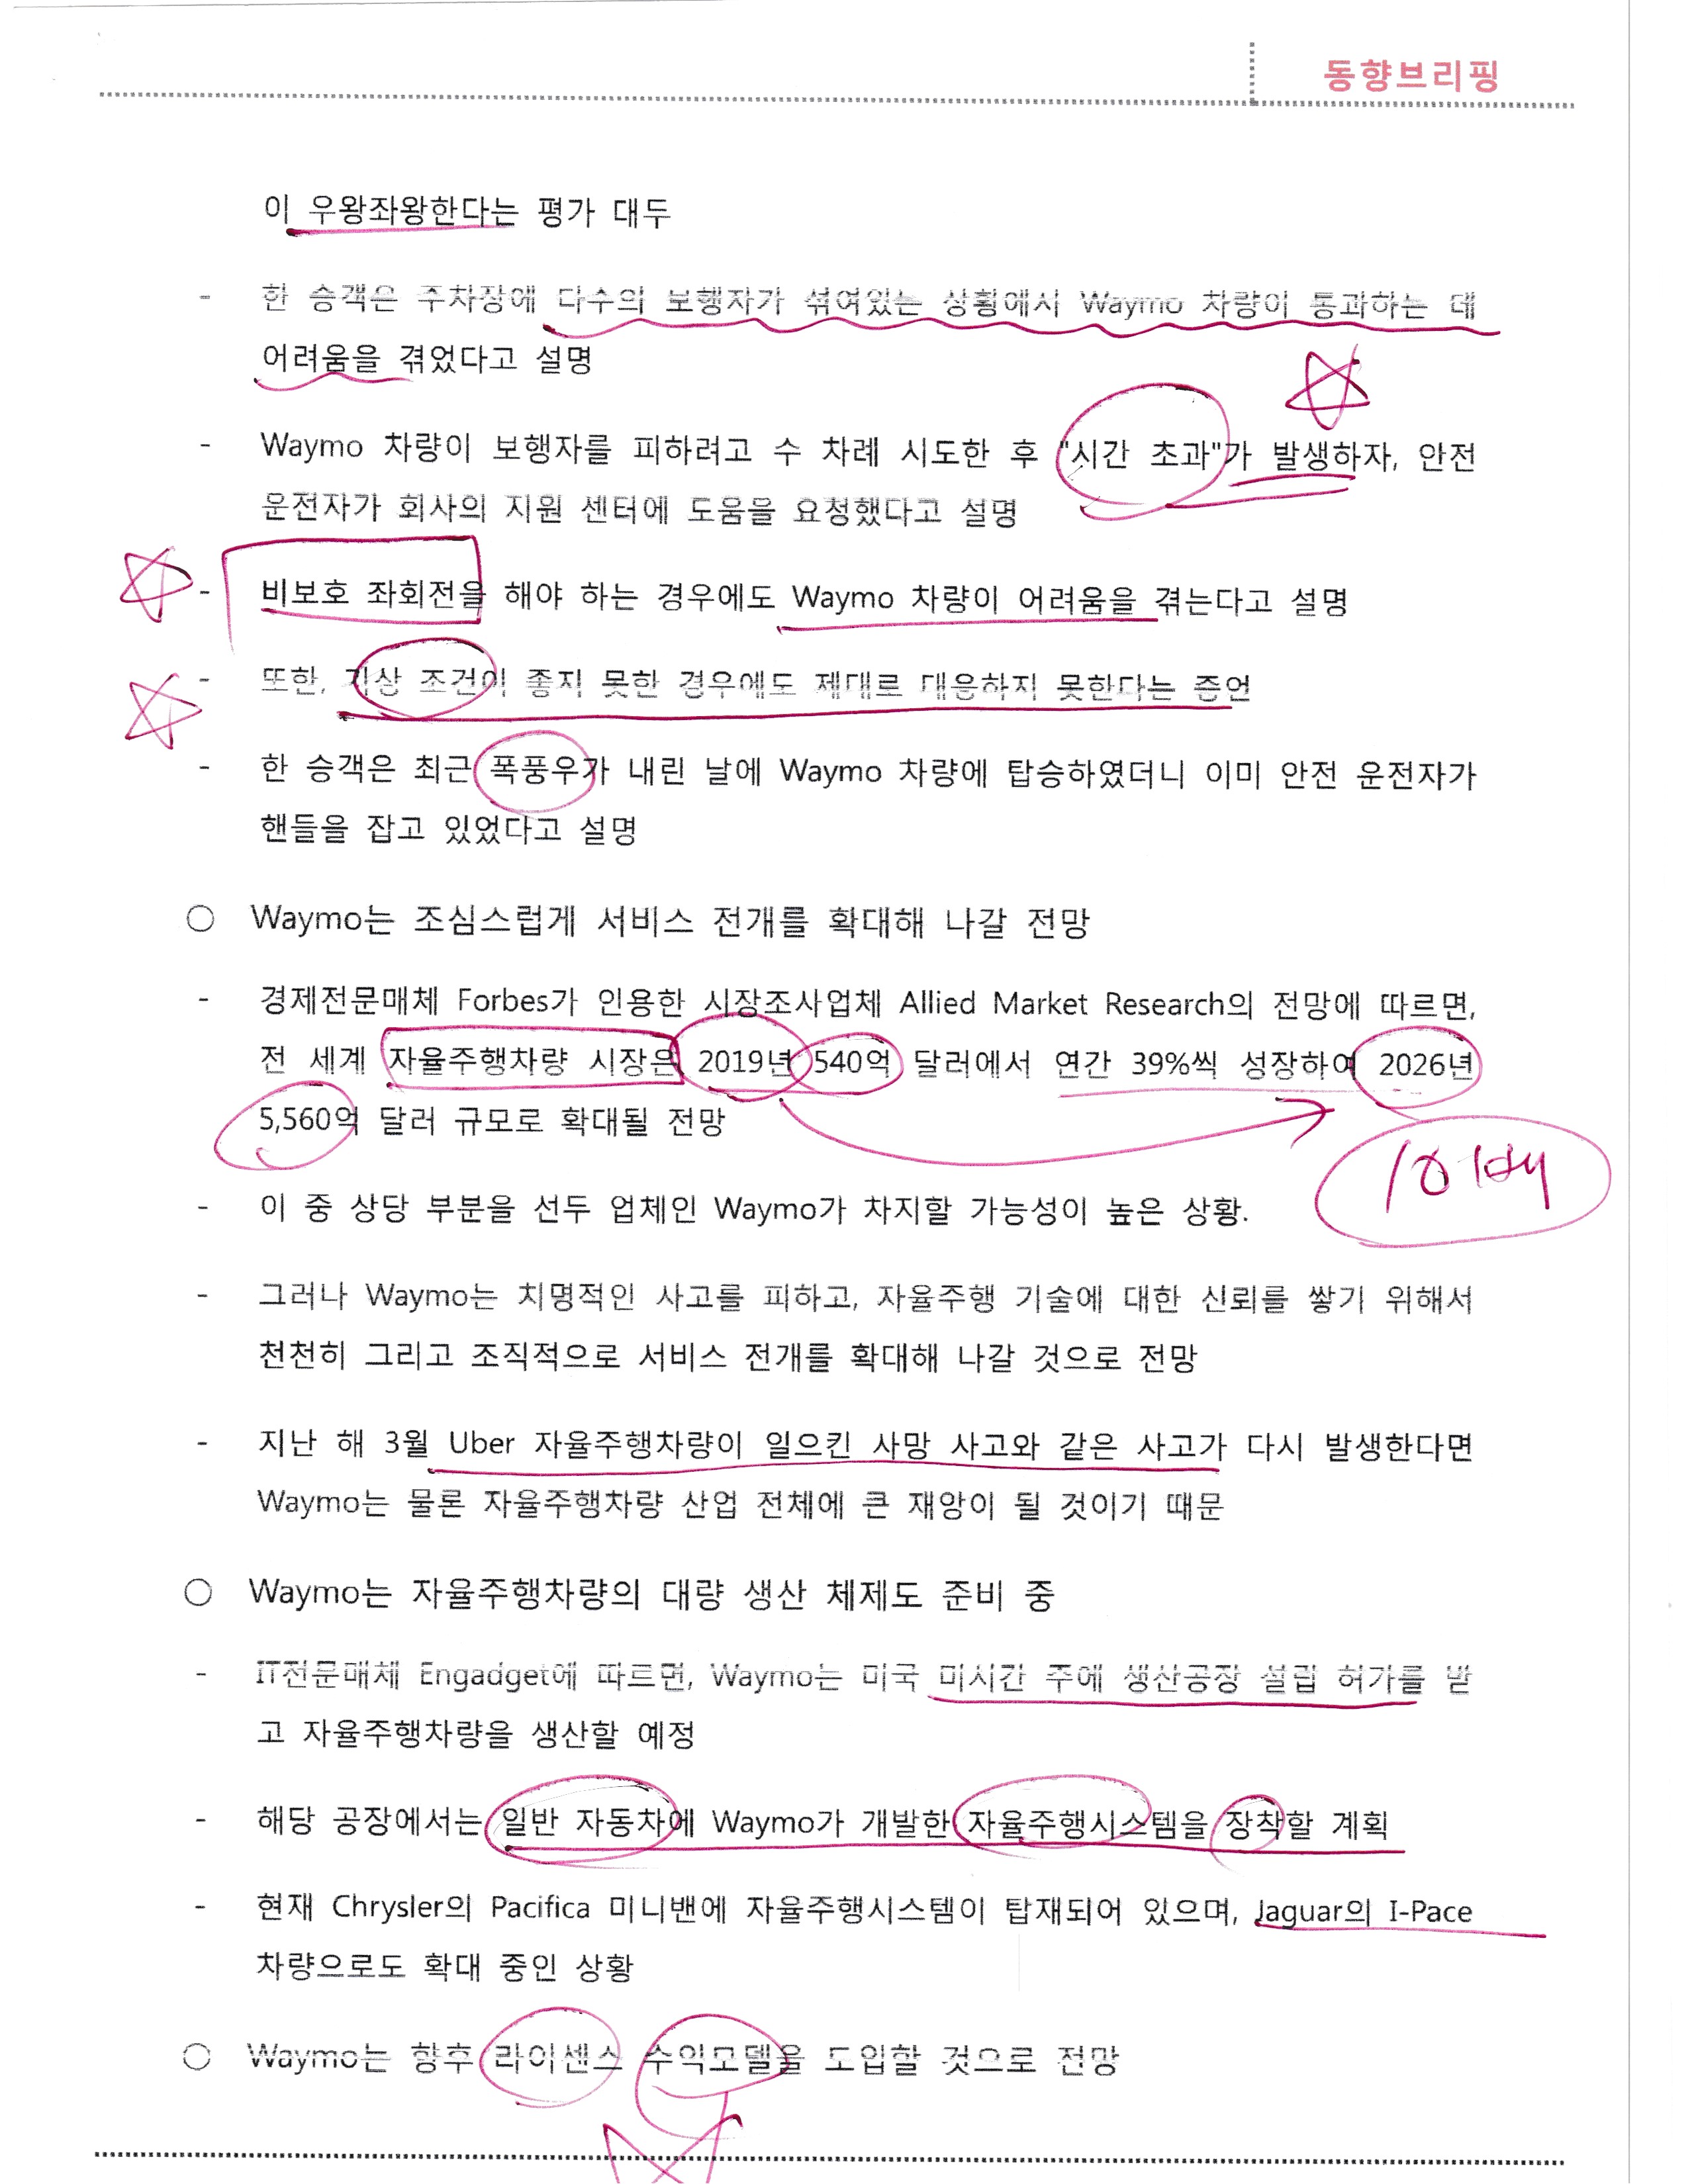 동향브리핑
이 우왕좌왕한다는 평가 대두
- 한 승객은 주차장에 다수의 보행자가 섞여있는 상황에서 Waymo 차량이 통과하는 데
어려움을 겪었다고 설명
- Waymo 차량이 보행자를 피하려고 수 차례 시도한 후 "시간 초과"가 발생하자, 안전
운전자가 회사의 지원 센터에 도움을 요청했다고 설명
- 비보호 좌회전을 해야 하는 경우에도 Waymo 차량이 어려움을 겪는다고 설명
- 또한, 기상 조건이 좋지 못한 경우에도 제대로 대응하지 못한다는 증언
- 한 승객은 최근 폭풍우가 내린 날에 Waymo 차량에 탑승하였더니 이미 안전 운전자가
핸들을 잡고 있었다고 설명
○ Waymo는 조심스럽게 서비스 전개를 확대해 나갈 전망
- 경제전문매체 Forbes가 인용한 시장조사업체 Allied Market Research의 전망에 따르면,
전 세계 자율주행차량 시장은 2019년 540억 달러에서 연간 39%씩 성장하여 2026년
5,560억 달러 규모로 확대될 전망
10배
- 이 중 상당 부분을 선두 업체인 Waymo가 차지할 가능성이 높은 상황.
- 그러나 Waymo는 치명적인 사고를 피하고, 자율주행 기술에 대한 신뢰를 쌓기 위해서
천천히 그리고 조직적으로 서비스 전개를 확대해 나갈 것으로 전망
- 지난 해 3월 Uber 자율주행차량이 일으킨 사망 사고와 같은 사고가 다시 발생한다면
Waymo는 물론 자율주행차량 산업 전체에 큰 재앙이 될 것이기 때문
○ Waymo는 자율주행차량의 대량 생산 체제도 준비 중
- IT전문매체 Engadget에 따르면, Waymo는 미국 미시간 주에 생산공장 설립 허가를 받
고 자율주행차량을 생산할 예정
- 해당 공장에서는 일반 자동차에 Waymo가 개발한 자율주행시스템을 장착할 계획
- 현재 Chrysler의 Pacifica 미니밴에 자율주행시스템이 탑재되어 있으며, Jaguar의 I-Pace
차량으로도 확대 중인 상황
○ Waymo는 향후 라이센스 수익모델을 도입할 것으로 전망